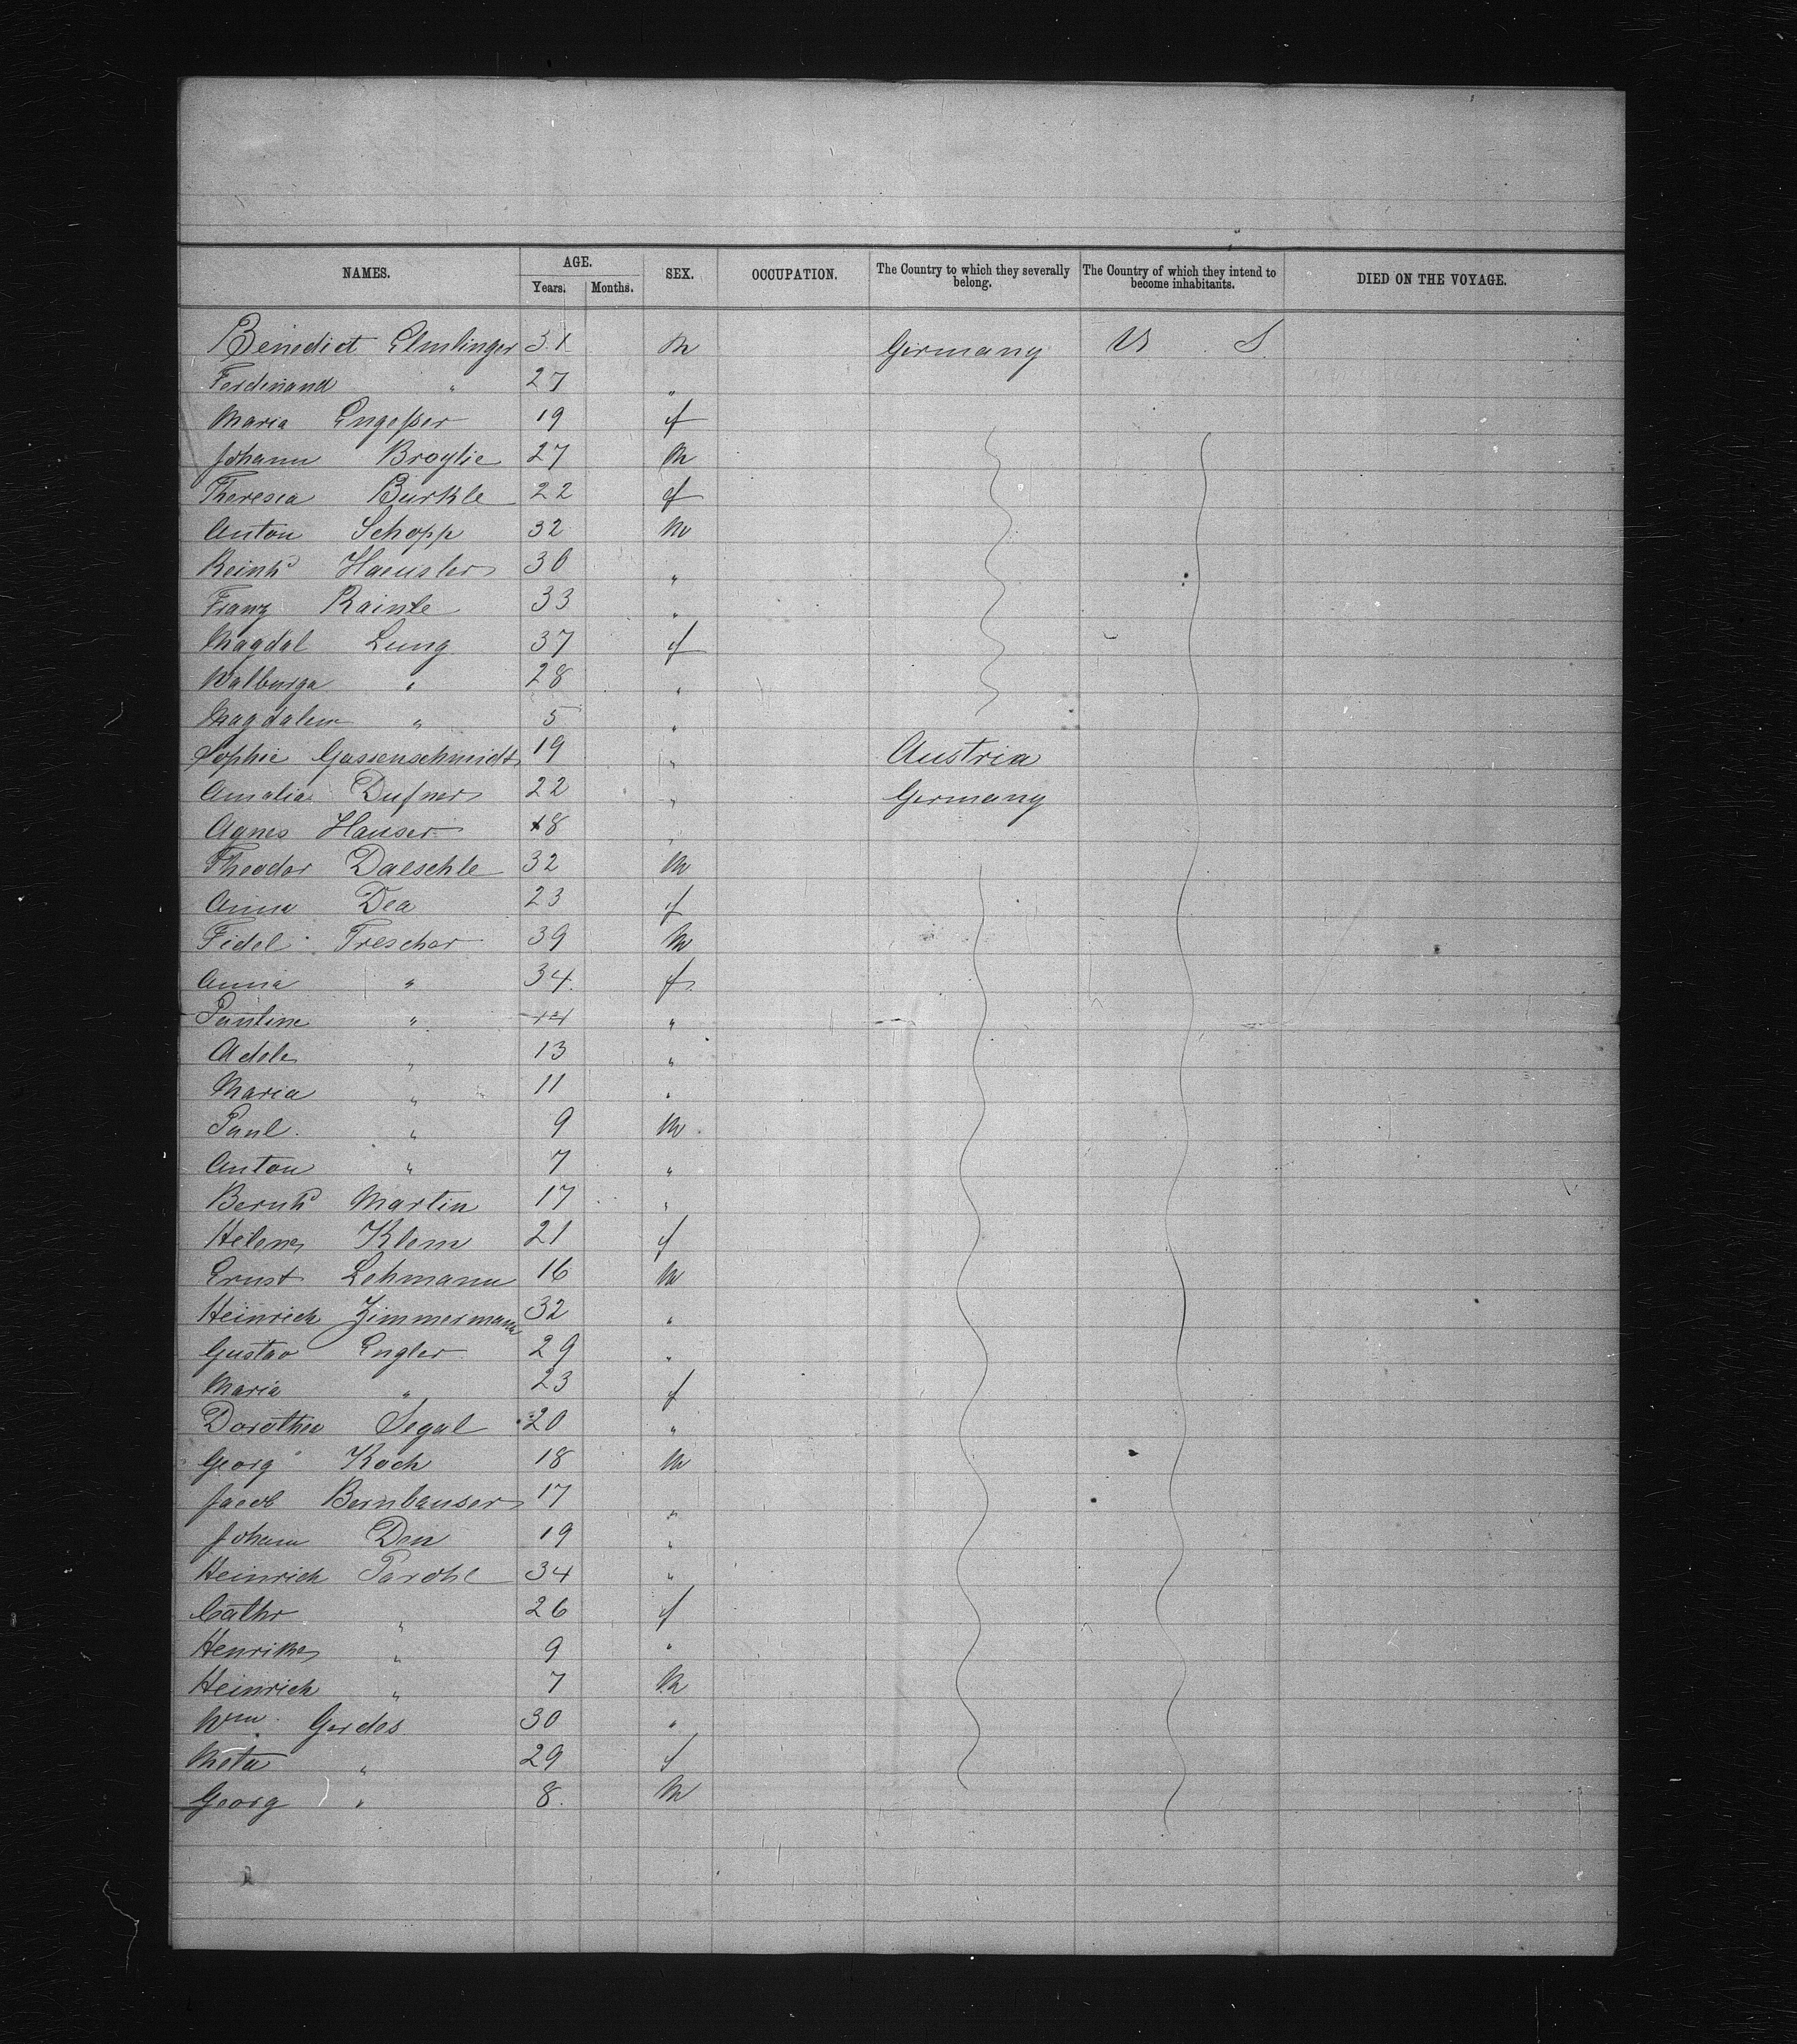 NAMES. AGE. SEX. OCCUPATION. The Country to which they severally belong. The Country of which they intend to become inhabitants. DIED ON THE VOYAGE.
Years. Months.
Benedict Elmlinger 31 m Germany U S
Ferdinand " 27 "
Maria Engesser 19 f
Johann Broglie 27 m
Theresia Burkle 22 f
Anton Schopp 32 m
Reinhd Haeusler 30 "
Franz Rainle 33 "
Magdal Lung 37 f
Walburga " 28 "
Magdalen " 5 "
Sophie Gassenschmidt 19 " Austria
Amalia Dufner 22 " Germany
Agnes Hauser 18 "
Theodor Daeschle 32 m
Anna Dea 23 f
Fidel Treschar 39 m
Anna " 34 f
Pauline " "
Adele " 13 "
Maria " 11 "
Paul " 9 m
Anton " 7 "
Bernhd Martin 17 "
Helene Klem 21 f
Ernst Lehmann 16 m
Heinrich Zimmermann 32 "
Gustav Engler 29 "
Maria " 23 f
Dorothea Segal 20 "
Georg Koch 18 m
Jacob Bernhauser 17 "
Johann 19 "
Heinrich 34 "
Cathr " 26 f
Henrike " 9 "
Heinrich " 7 m
Wm. Gerdes 30 "
Meta " 29 f
Georg " 8 m